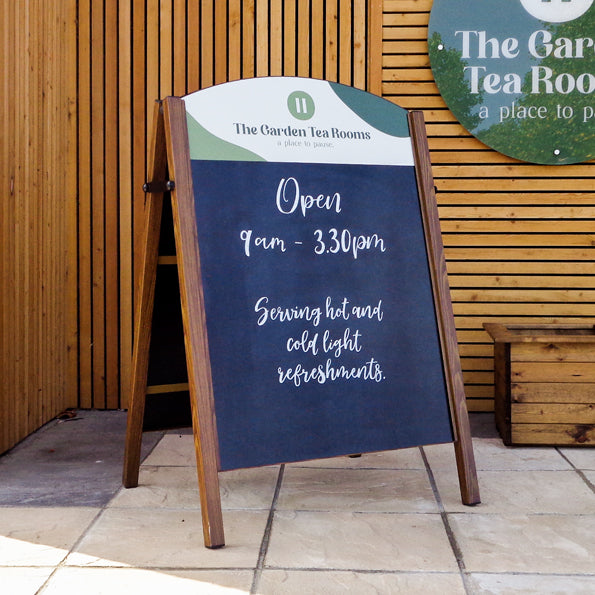 The Garden Tea Rooms
a place to pause.
Open
9am - 3.30pm
Serving hot and
cold light
refreshments.
The
Tea
a place to